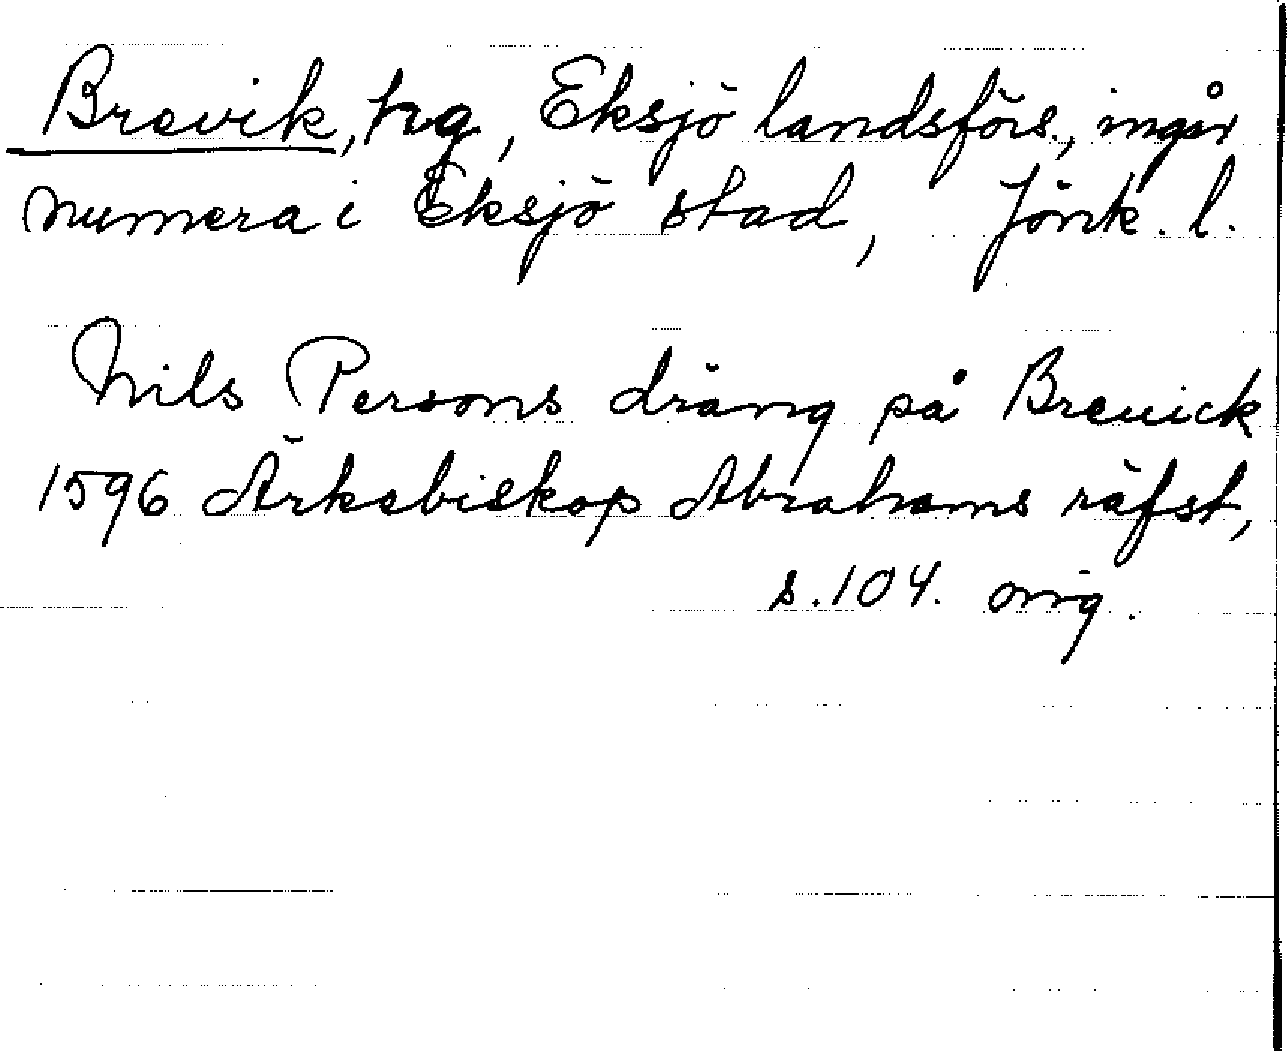 Brevik, hg, Eksjö landsförs., ingår
numera i Eksjö stad, Jönk. l.
Nils Persons dräng på Breuick
1596 Ärkebiskop Abrahams räfst,
s. 104. orig.